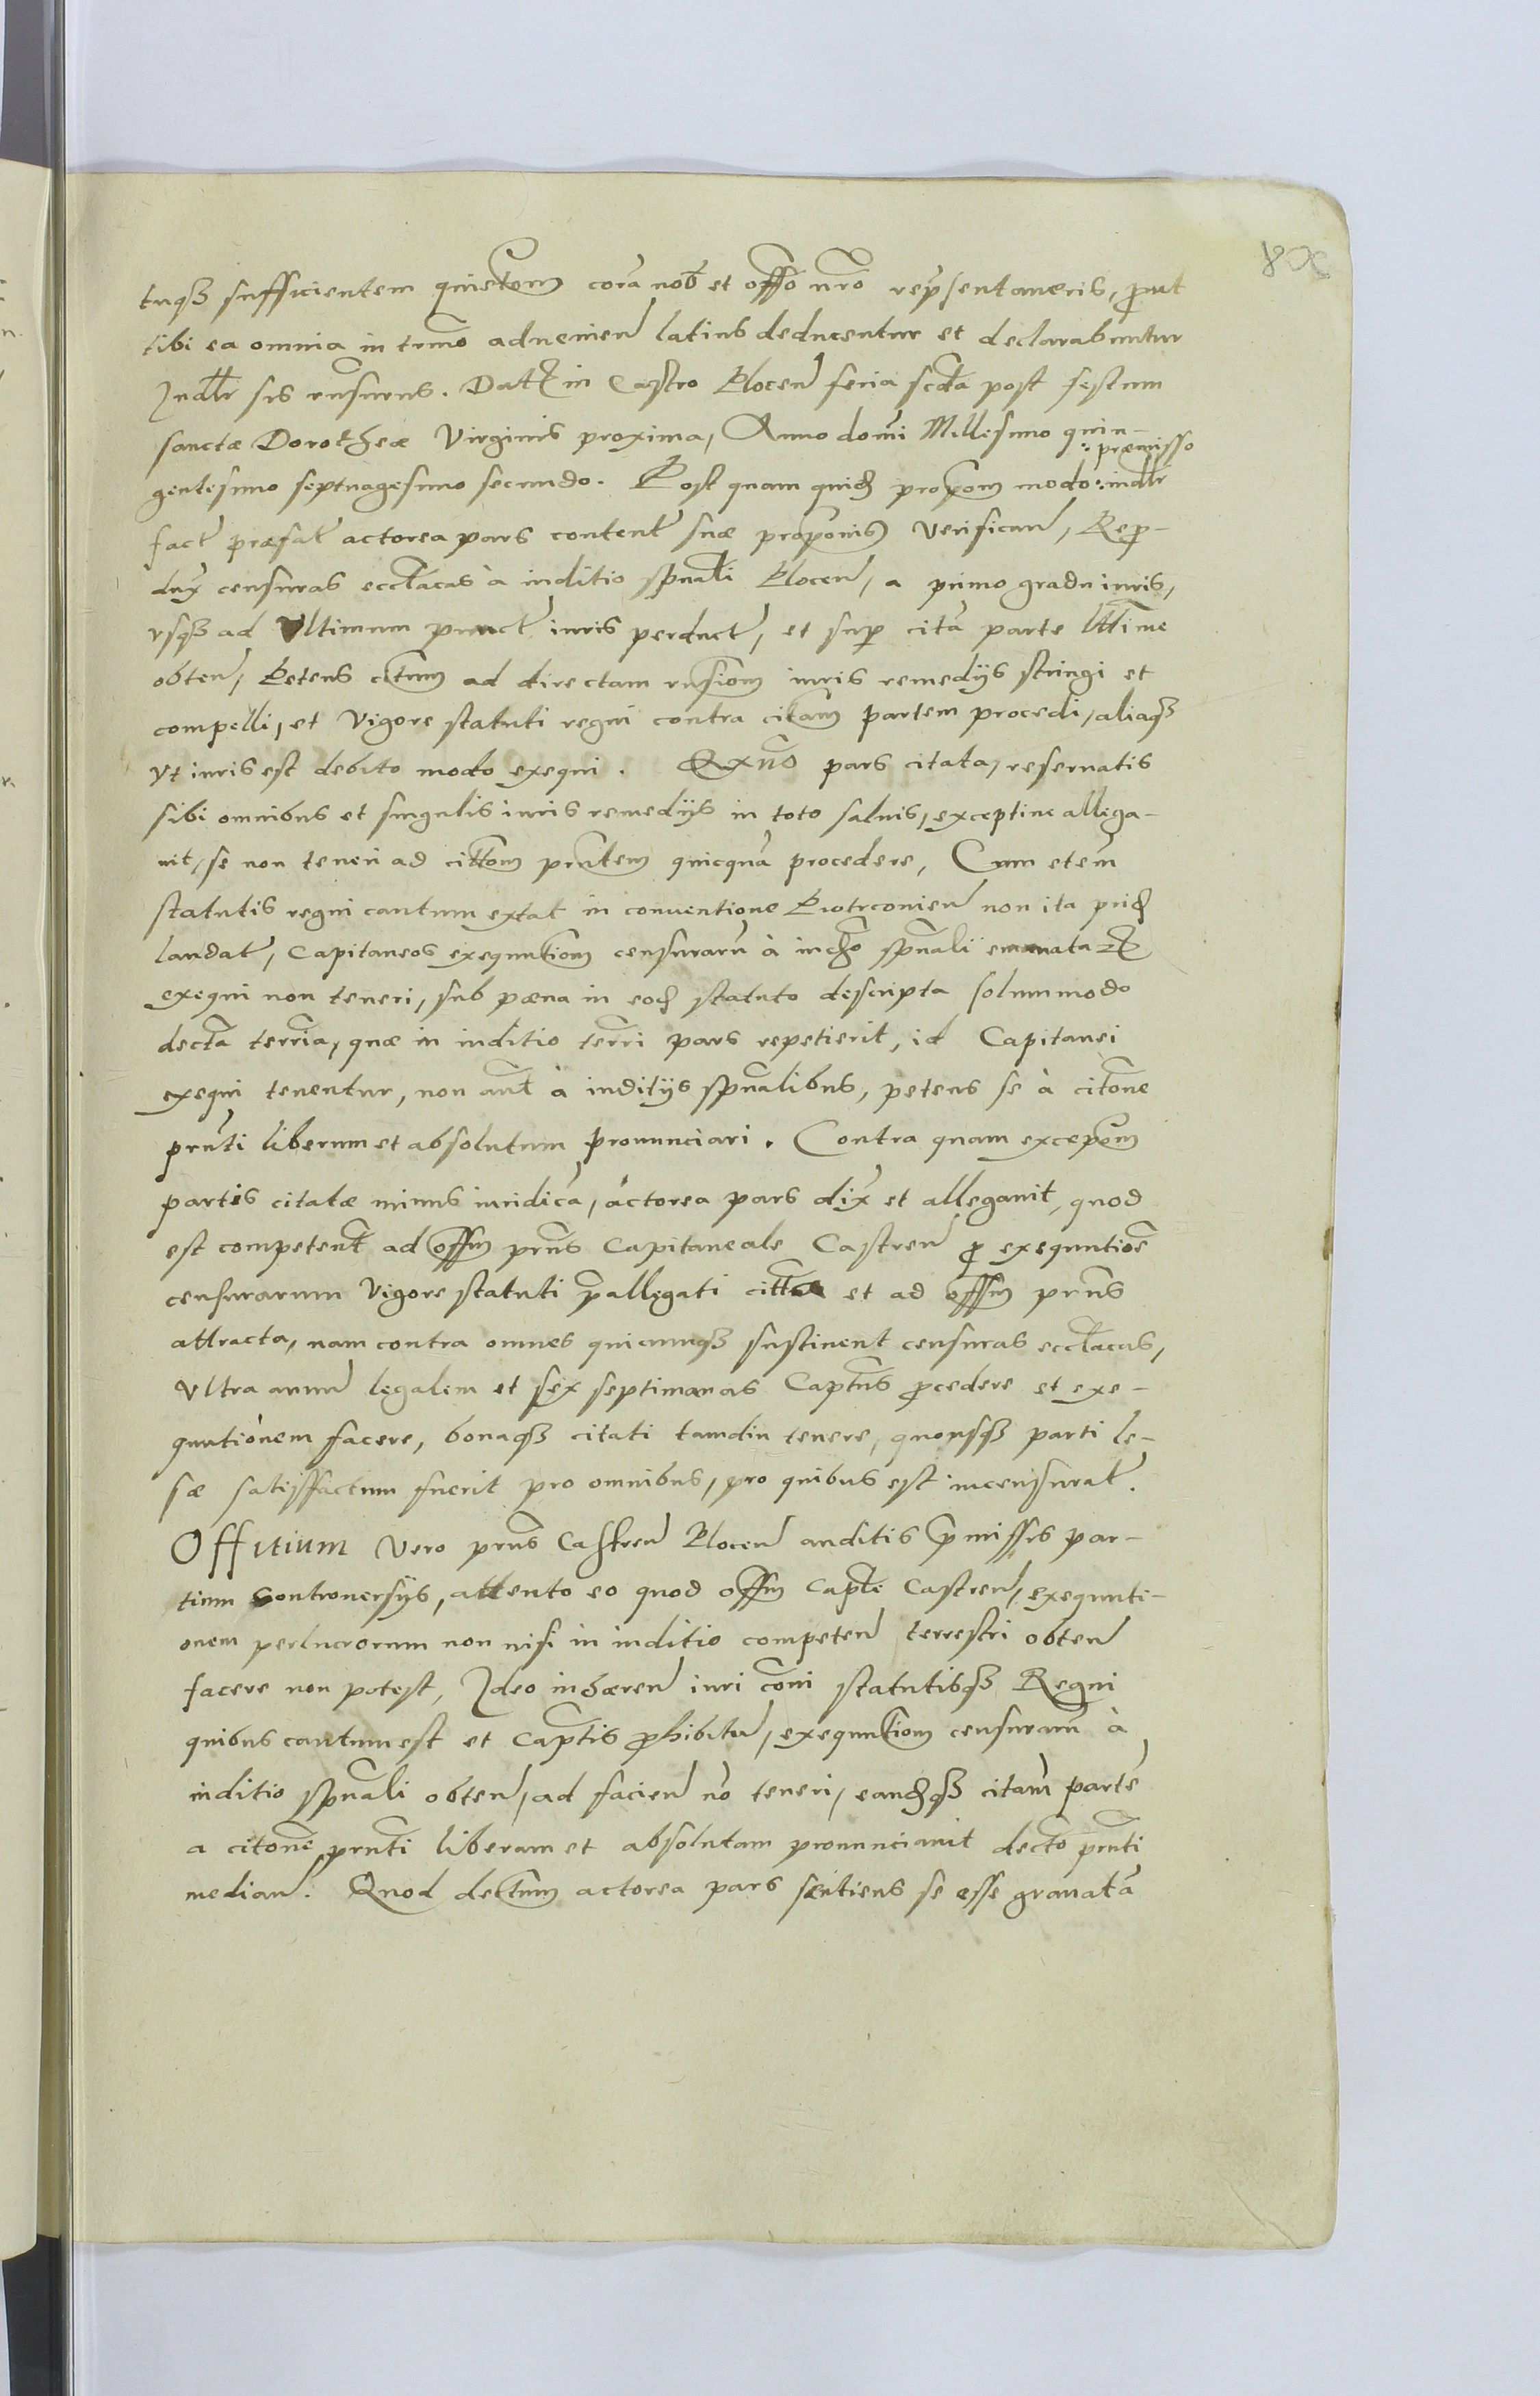 tuq₃ sufficientem quietem̃ corã nob̃ et offo ñro rep̃sentaueris, ꝓut
tibi ea omnia in tmo adueniẽ latius deducentur et declarabuntur
Judlr sis rñsurus. Datt in Castro Plocẽ feria scda post festum
sanctæ Dorotheæ Virginis proxima, Anno domi Millesimo quin-
gentesimo septuagesimo secundo. Post quam quid propom̃ modo :præmisso: iudlr
fact præfat actorea pars content suæ proponis verifican, Rep̃-
dux censuras eccl̃acas à iuditio spũali Plocẽ, a primo gradu iuris,
vsq₃ ad Vltimum punct iuris perduct, et sup citã parte l̃time
obteñ, Petens citum ad directam rñsiom̃ iuris remedijs stringi et
compelli, et Vigore statuti regni contra citam̃ partem procedi, aliaq₃
vt iuris est debito modo exequi. Ex aũo pars citata, reseruatis
sibi omnibus et singulis iuris remedijs in toto saluis, exceptiue allega-
uit, se non teneri ad cittom̃ pñtem̃ quicquã procedere, Cum etẽm
statutis regni cautum extat in conuentione Piotrconieñ non ita prid
laudat, Capitaneos exequutiom̃ censurarũ à iudo spũali emanata℞
exequi non teneri, sub pæna in eod statuto descripta solummodo
dectã terria, quæ in iuditio terri pars repetierit, id Capitanei
exequi tenentur, non aut̃ à iuditijs spũalibus, petens se à citõne
pñti liberum et absolutum pronunciari. Contra quam excepom̃
partis citatæ minus iuridicã, actorea pars dix̃ et allegauit, quod
est competent̃ ad offm̃ pñs Capitaneale Castreñ ꝓ exequutioẽ
censurarum Vigore statuti p̃allegati citta et ad offm̃ pñs
attracta, nam contra omnes quicunq₃ sustinent censuras eccl̃acas,
vltra annũ legalem et sex septimanas Captñs ꝓcedere et exe-
quutionem facere, bonaq₃ citati tamdiu tenere, quousq₃ parti le-
sæ satisffactum fuerit pro omnibus, pro quibus est incensurat̃.
Offitium vero pñs Castreñ Ploceñ auditis p̃missis par-
tium controuersijs, attento eo quod offm̃ Captle Castreñ, exequuti-
onem perlucrorum non nisi in iuditio competeñ terrestri obteñ
facere non potest, Ideo inhæreñ iuri coñi statutibq₃ Regni
quibus cautum est et Captis ꝓhibitũ, exequutiom̃ censurarũ à
iuditio spũali obteñ, ad facieñ nõ teneri, eandq₃ citam̃ partẽ
a citone pñti liberam et absolutam pronunciauit decto pñti
mediañ. Quod dectum actorea pars sentiens se esse grauatã